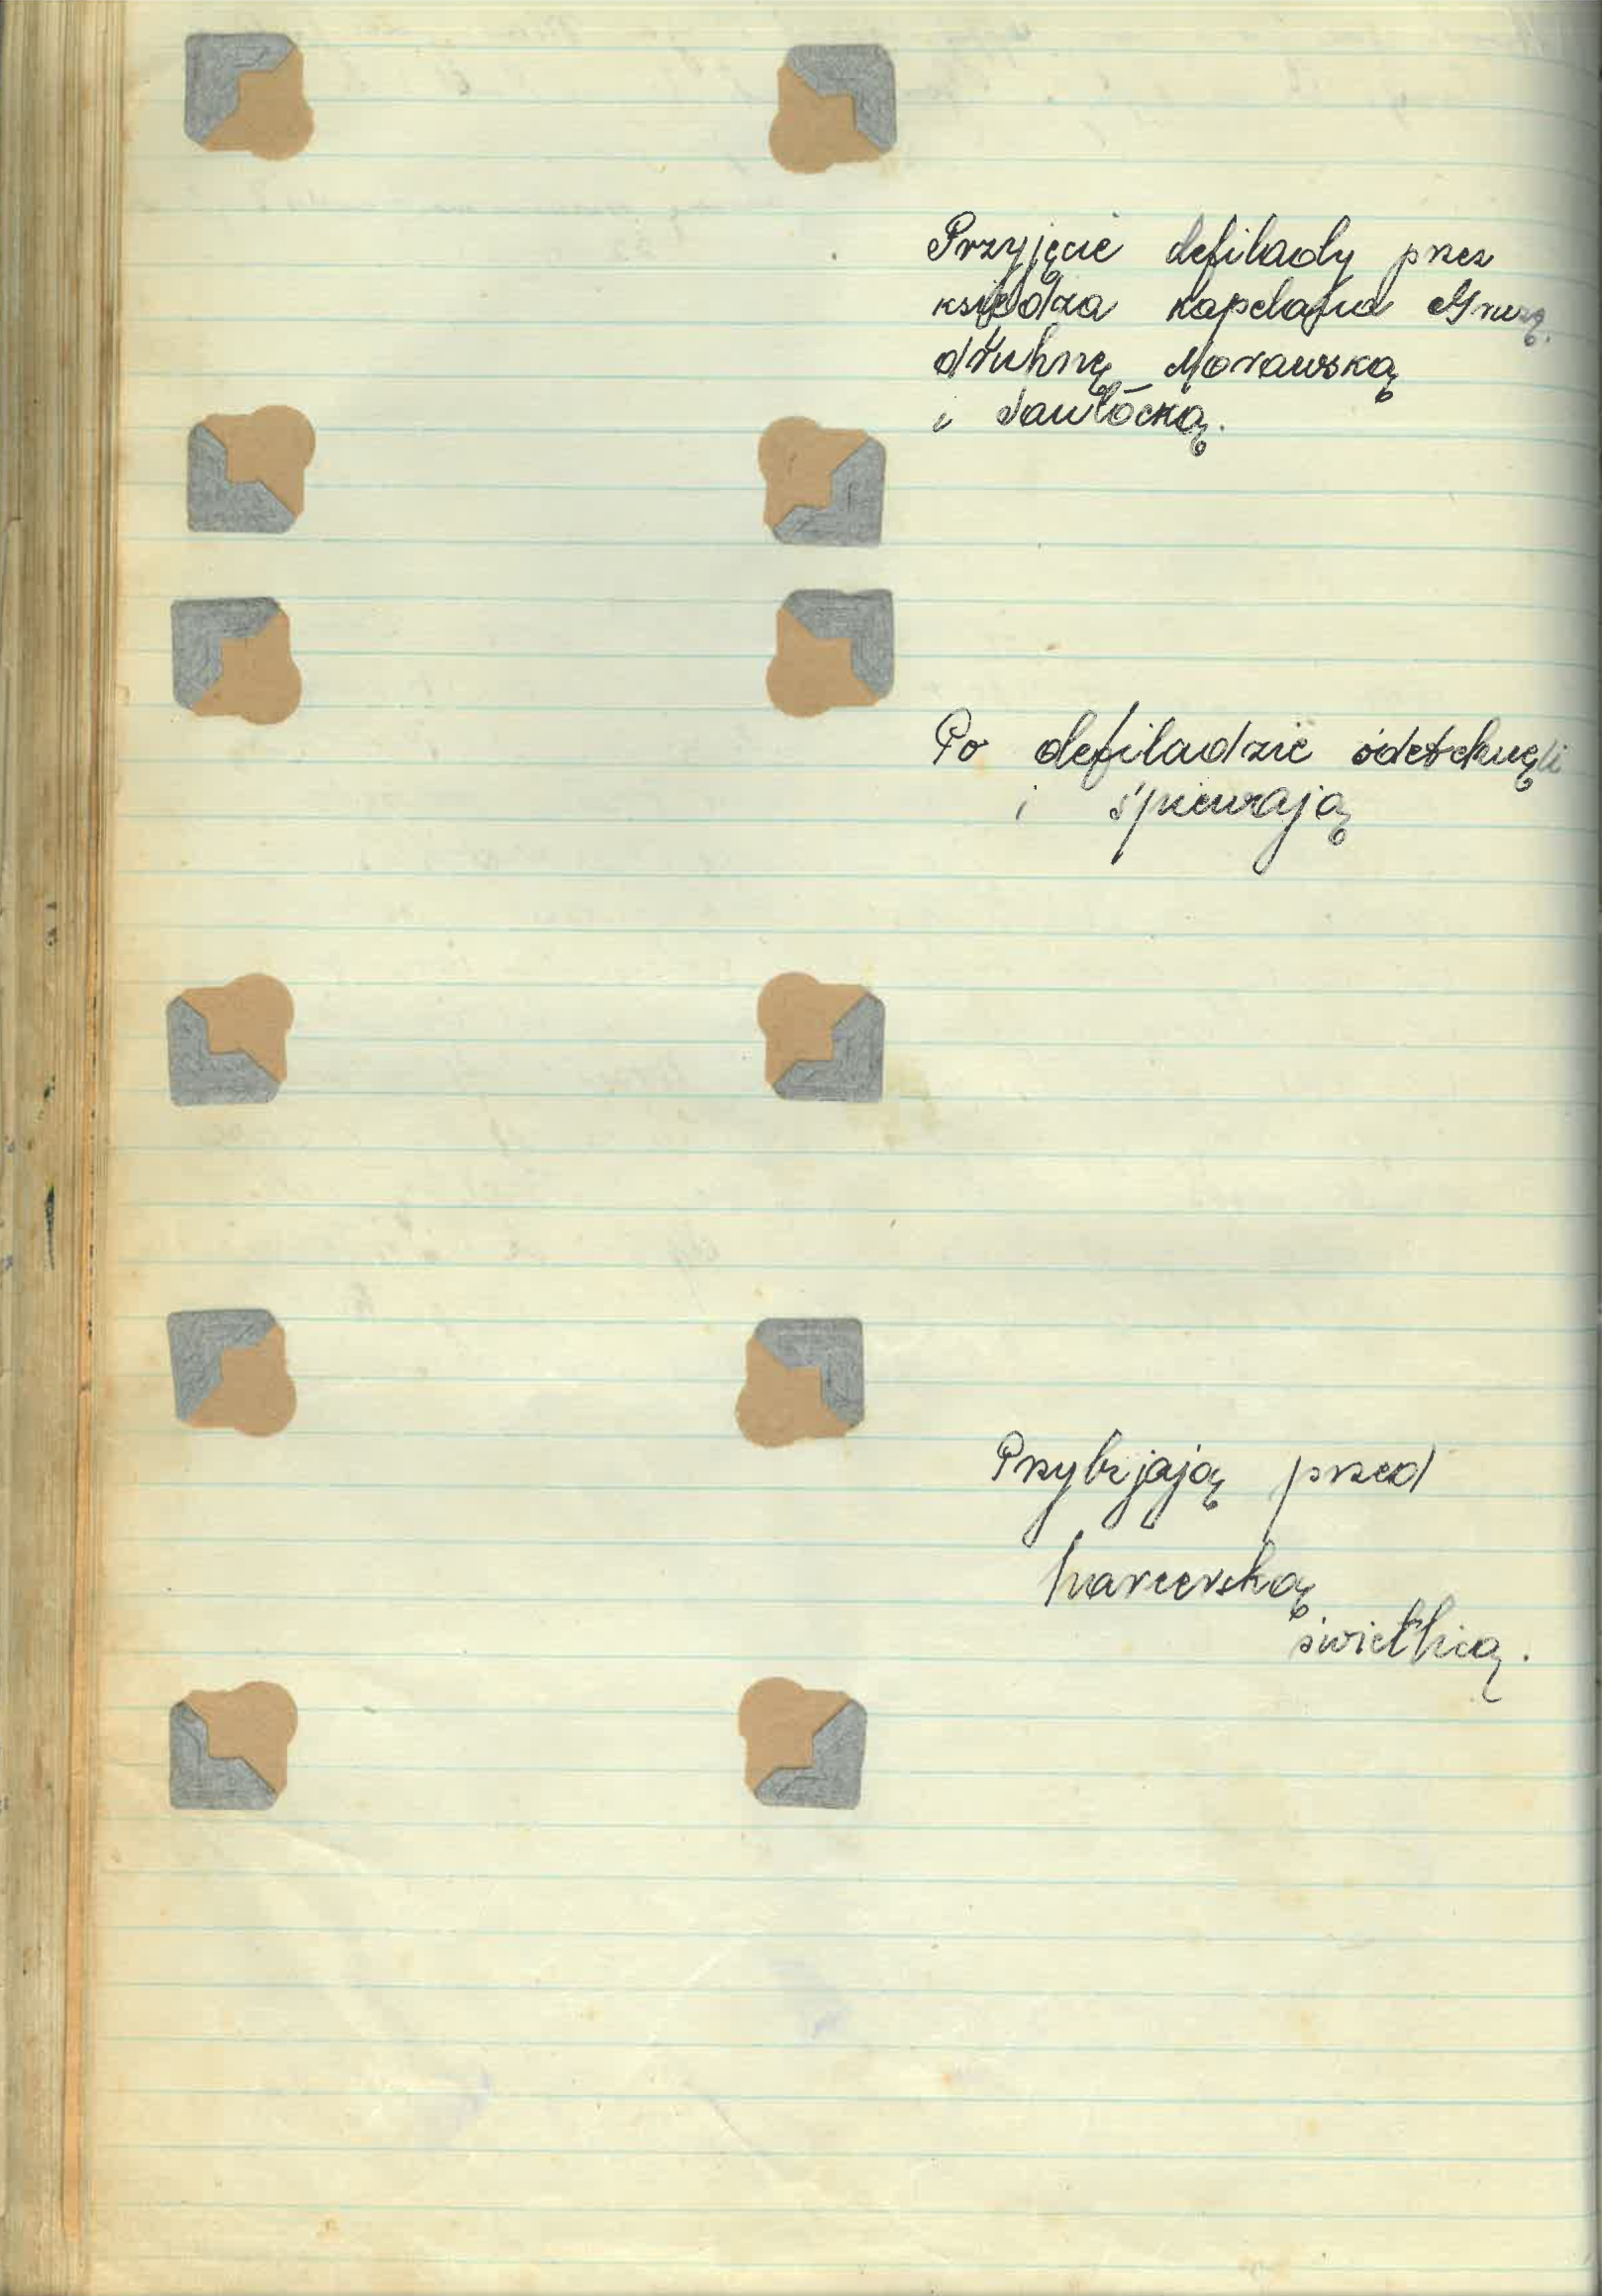 Przyjęcie defilady przez
księdza kapelana Gruzę.
druhnę Morawską
i Jawłocką.
Po defiladzie odetchnęli
i śpiewają
Przybijają przed
harcerską
świetlicą.